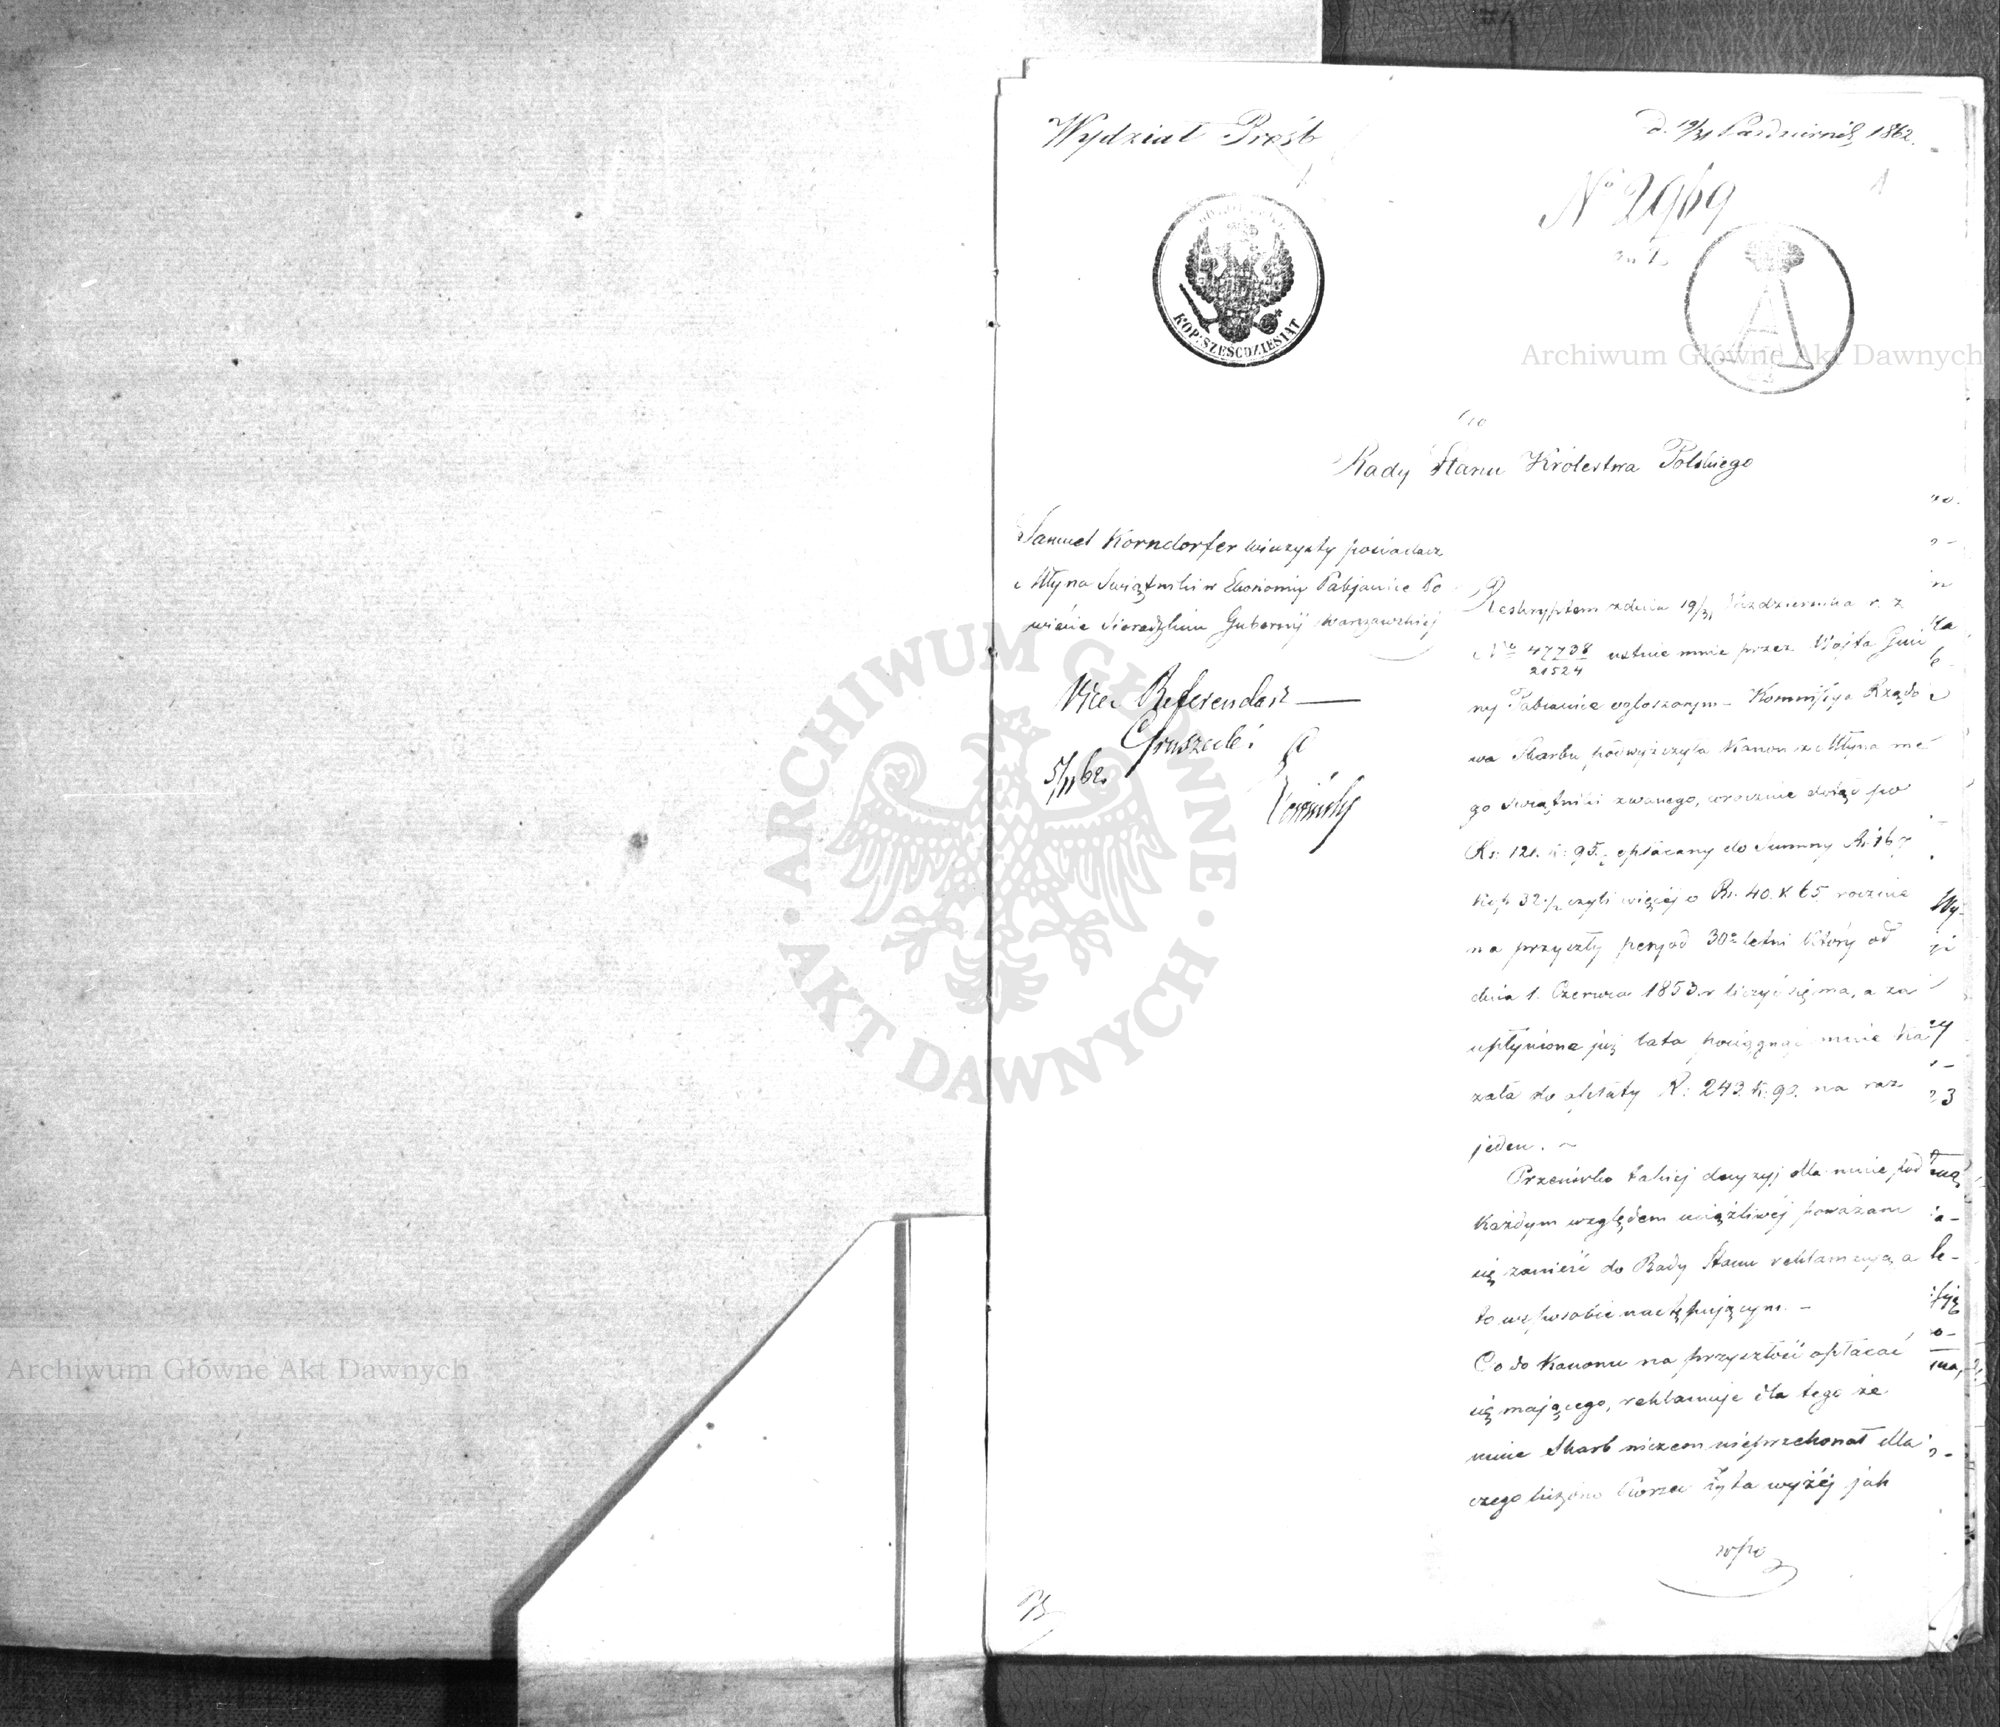 Wydział Prośb
d. 19/31 Październik 1862.
No 2969
1
KOP. SZEŚĆDZIESIĄT
A
Do
Rady Stanu Królestwa Polskiego
Samuel Korndorfer wieczysty posiadacz
Młyna Świątniki w Ekonomij Pabjanice Po
wiecie Sieradzkim Gubernij Warszawskiej
Vice Referendarz
Gruszecki
5/11 62.
Reskryptem z dnia 19/31 Października r. z
No 47738/21524 ustnie mnie przez Wójta Gmi
ny Pabianice ogłoszonym – Kommissya Rządo
wa Skarbu podwyższyła Kanon z Młyna me
go Świątniki zwanego, corocznie dotąd po
Rs. 121. k: 95. opłacany do Summy Rs. 162
kop 32 1/2 czyli więcej o Rs. 40. K 65. rocznie
na przyszły peryod 30o letni który od
dnia 1. Czerwca 1853. r liczyć się ma, a za
upłynione już lata pociągnąć mnie ka
zała do opłaty R: 243. k: 90. na raz
jeden. –
Przeciwko takiej decyzyj dla mnie pod
każdym względem uciążliwej poważam
się zanieść do Rady Stanu reklamacyą a
to w sposobie następującym. –
Co do Kanonu na przyszłość opłacać
się mającego, reklamuje dla tego że
mnie Skarb niczem nieprzekonał dla
czego liczono Korzec Żyta wyżej jak
wpo
Archiwum Główne Akt Dawnych
Archiwum Główne Akt Dawnych
ARCHIWUM GŁÓWNE · AKT DAWNYCH ·